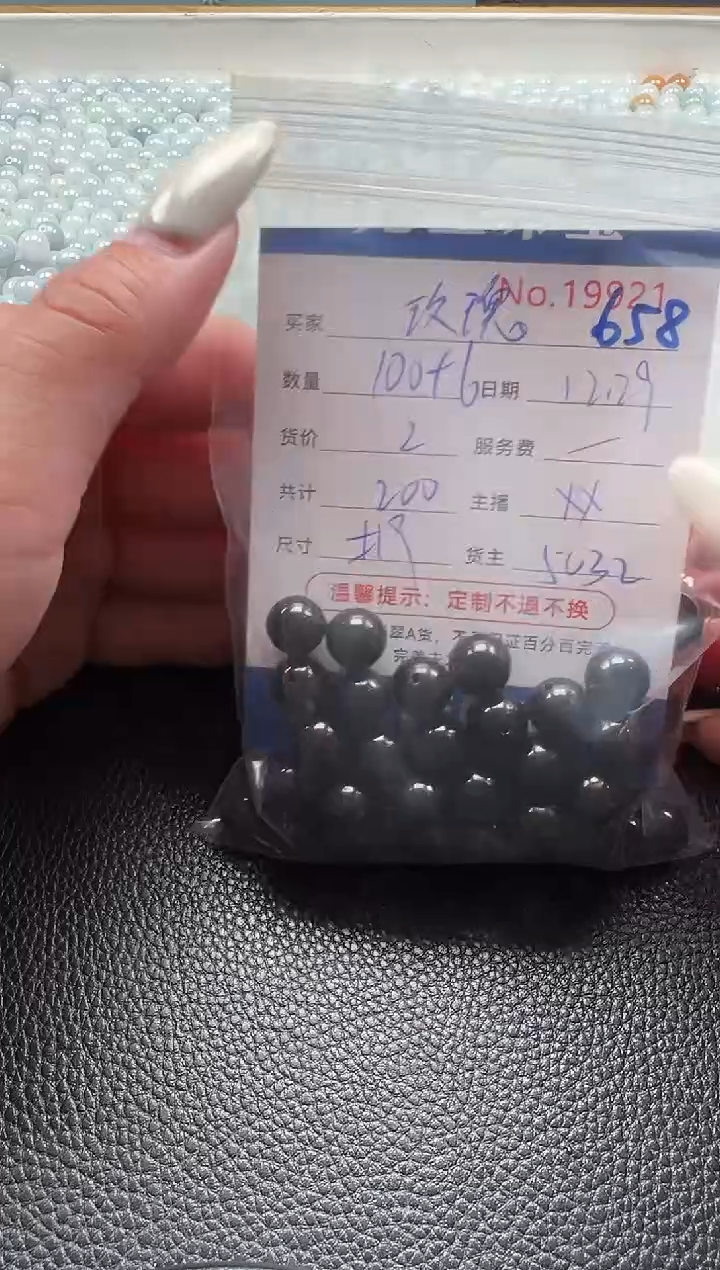 No.19921
买家 玫瑰。 658
数量 100+6 日期 12.29
货价 2 服务费 一
共计 200 主播 XX
尺寸 货主 5032
温馨提示：定制不退不换
翠A货，不
证百分百完